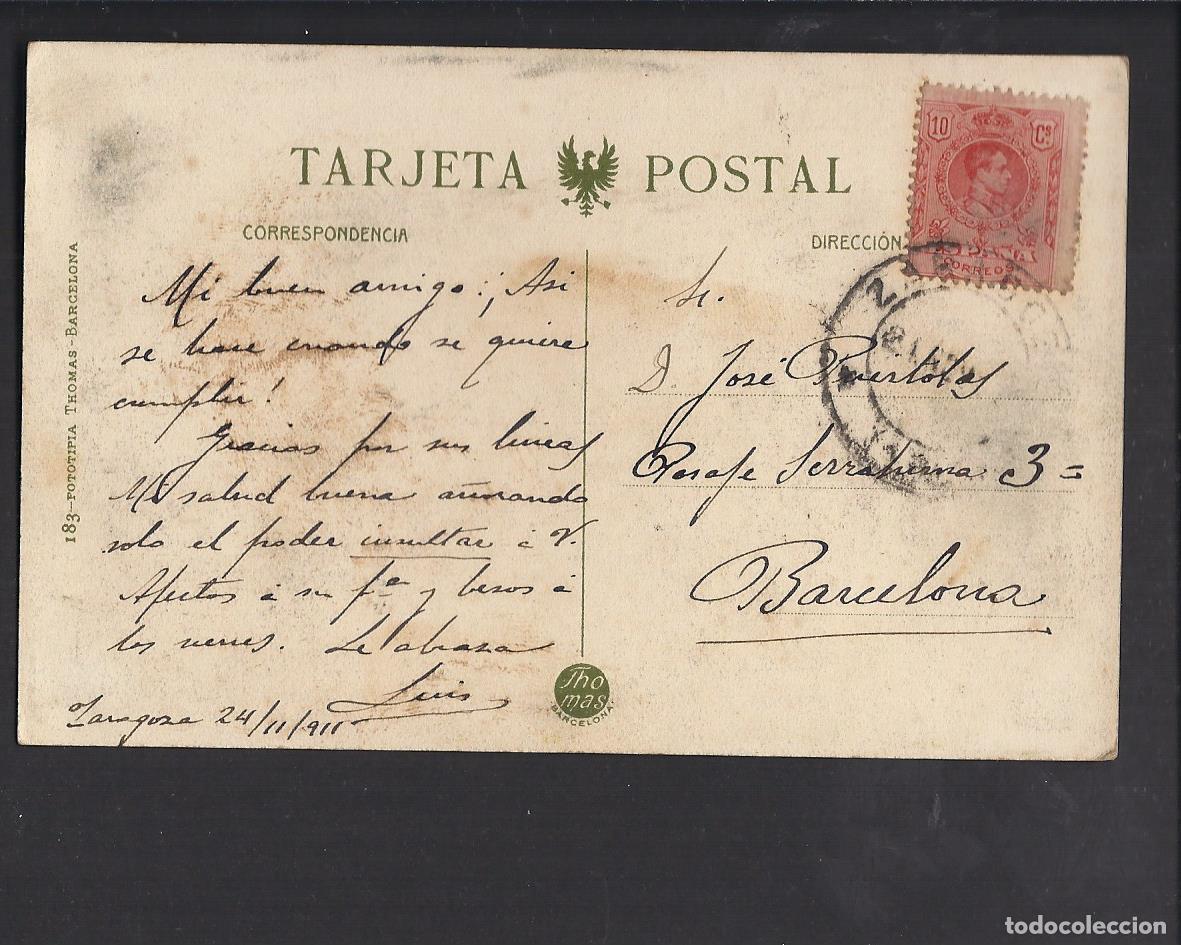 TARJETA POSTAL
CORRESPONDENCIA
DIRECCIÓN
10 Cs
ESPAÑA
CORREOS
Mi buen amigo: ¡Asi
se hace cuando se quiere
cumplir!
Gracias por sus lineas
Mi salud buena añorando
solo el poder insultar á V.
Afectos á su fa y besos á
los nenes. Le abraza
Luis
Zaragoza 24/11/911
Sr.
D. José Puertolas
Pasaje Serrahima 3=
Barcelona
183-FOTOTIPIA THOMAS-BARCELONA
Thomas
BARCELONA
todocoleccion